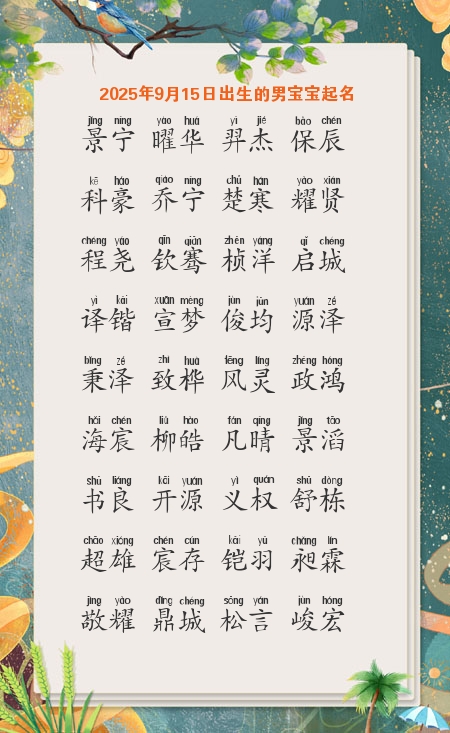 2025年9月15日出生的男宝宝起名
jǐng níng yào huá yì jié bǎo chén
景宁 曜华 羿杰 保辰
kē háo qiáo níng chǔ hán yào xián
科豪 乔宁 楚寒 耀贤
chéng yáo qīn qiān zhēn yáng qǐ chéng
程尧 钦骞 桢洋 启城
yì kǎi xuān mèng jùn jūn yuán zé
译锴 宣梦 俊均 源泽
bǐng zé zhì huà fēng líng zhèng hóng
秉泽 致桦 风灵 政鸿
hǎi chén liǔ hào fán qíng jǐng tāo
海宸 柳皓 凡晴 景滔
shū liáng kāi yuán yì quán shū dòng
书良 开源 义权 舒栋
chāo xióng chén cún kǎi yǔ chǎng lín
超雄 宸存 铠羽 昶霖
jìng yào dǐng chéng sōng yán jùn hóng
敬耀 鼎城 松言 峻宏